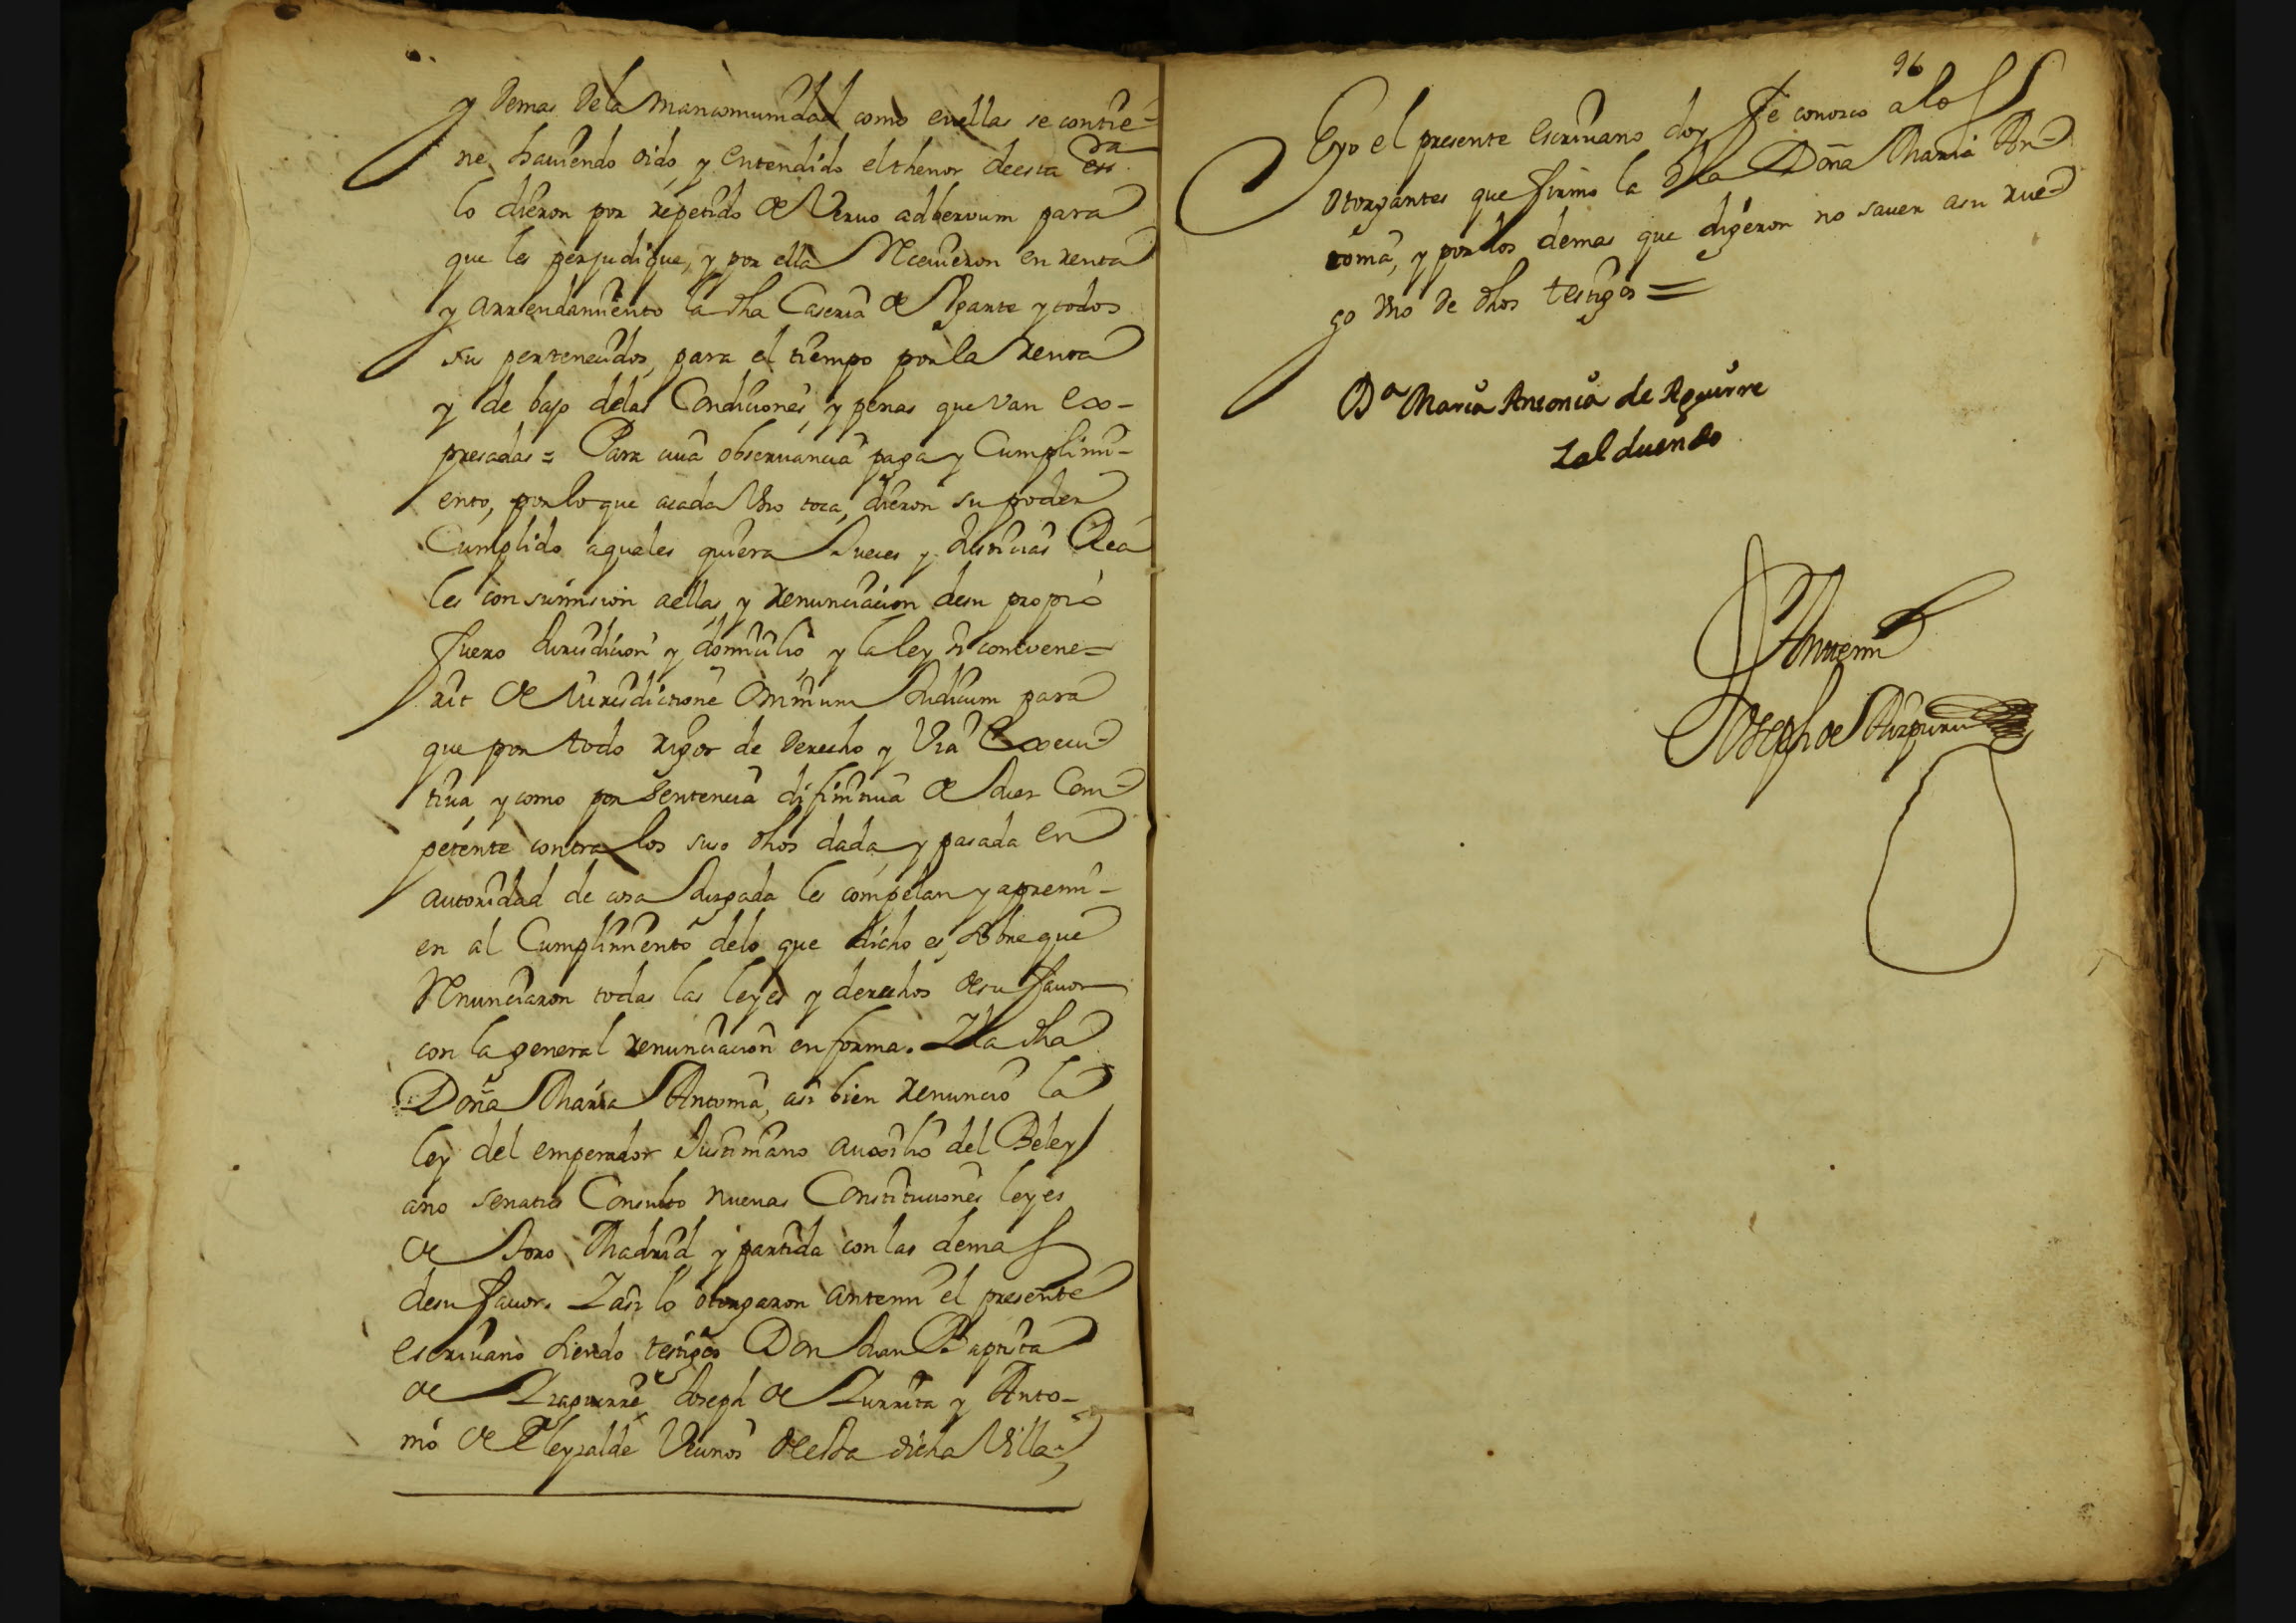 y demas dela mancomunidad como enellas se contie-
ne, haviendo oido, y entendido elthenor deesta essra
lo dieron por repetido de Vervo adbervum para
que les perjudique, y por ella Recivieron en renta
y arrendamiento la dha Caseria de Ygarte y todos
su pertenecidos, para el tiempo por la renta
y de bajo delas Condiciones, y penas que van Ex-
presadas = Para cuia observancia paga y Cumplimi-
ento, por lo que acada Vno toca, dieron su poder
Cumplido aquales quiera Jueces y Justicias Rea
les con sumision aellas, y renunciacion desu propio
fuero Jurisdicion y domicilio, y la ley si convene=
rit de Jurisdictione Omnium Judicum para
que por todo rigor de derecho y Via Execu-
tiva, y como por sentencia difinitiva de Juez Com-
petente contra los suso dhos dada, y pasada en
autoridad de cosa Juzgada les compelan y apremi-
en al Cumplimiento delo que dicho es, sobre que
Renunciaron todas las leyes y derechos desu favor
con la general renunciacion en forma. Y la dha
Doña Maria Antonia, asi bien renuncio la
ley del emperador Justiniano auxilio del Beley
ano senatus Consulto nuevas Constituciones leyes
de Toro Madrid y partida con las demas
desu favor. Y asi lo otorgaron antemi el presente
escrivano siendo testigos Don Juan Baptista
de Yzaguirre Joseph de Zurrita y Anto-
nio de Eleyzalde Vecinos deesta dicha Villa,
96
Eyo el presente escrivano doy fe conozco alos
otorgantes que firmo la dha Doña Maria An-
tonia, y por los demas que digeron no saver asu rue-
go Vno de dhos testigos =
Da Maria Antonia de Aguirre
Zalduendo
Antemi
Joseph de Aizpuru